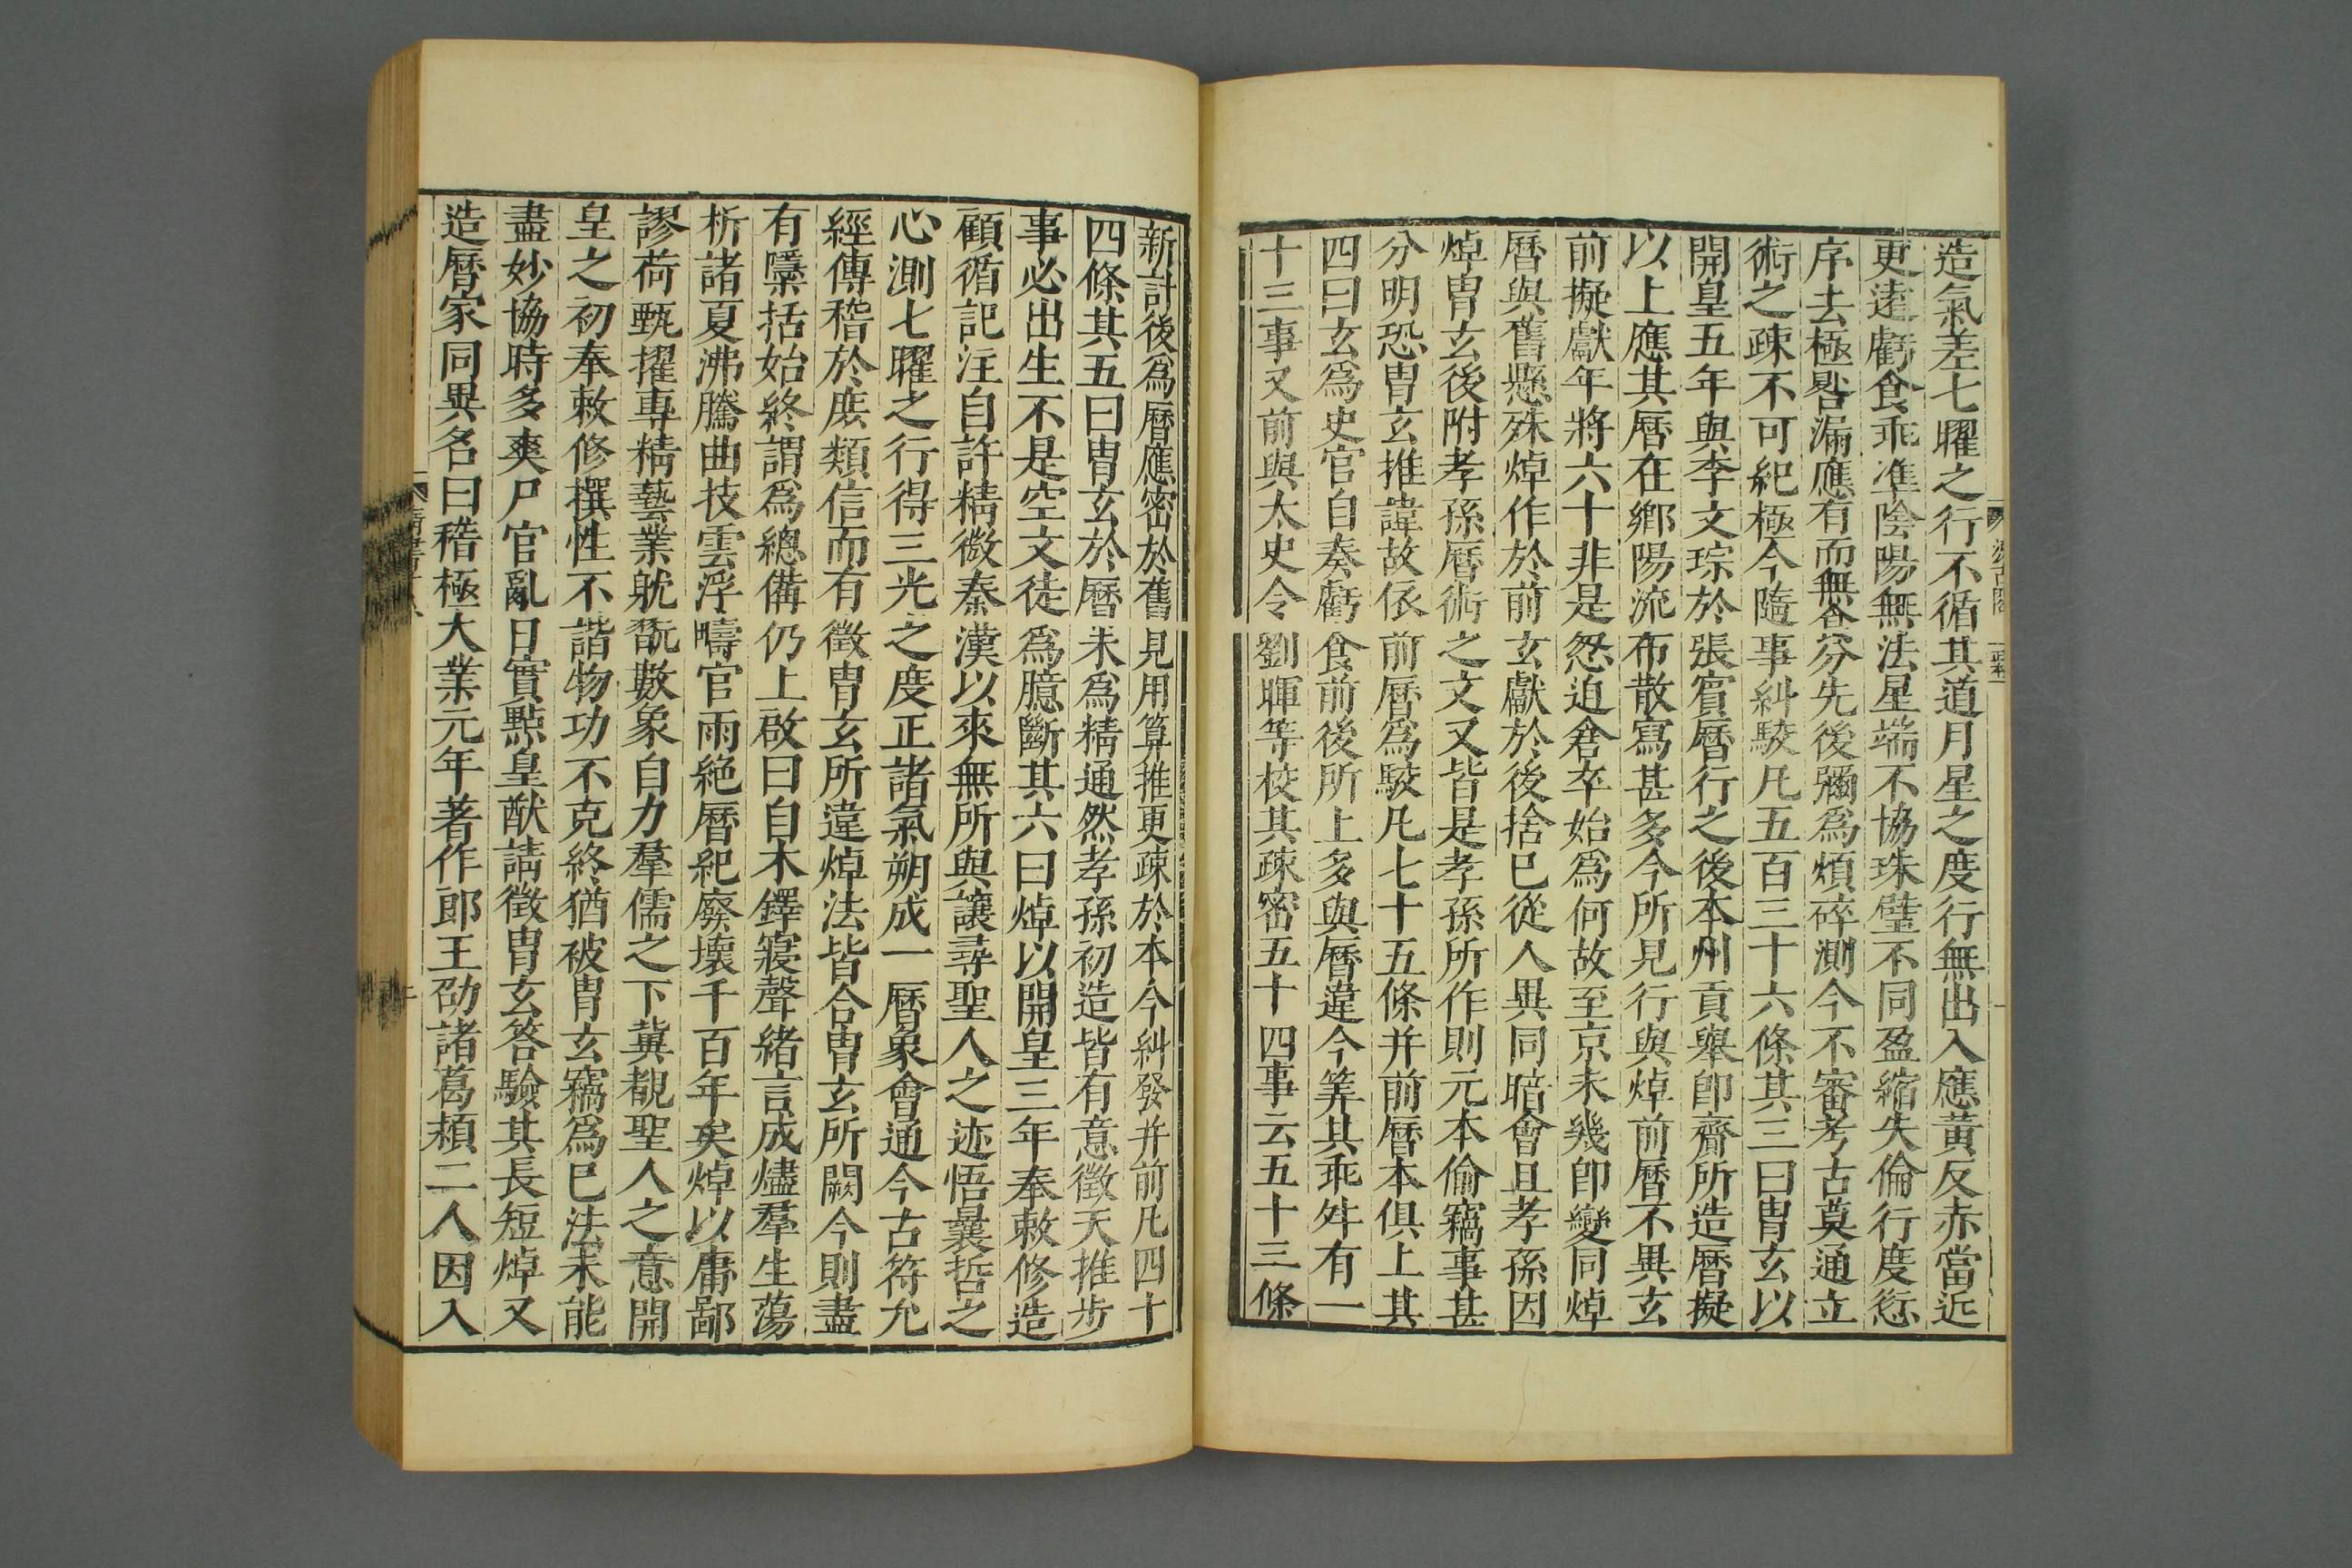 造氣差七曜之行不循其道月星之度行無出入應黃反赤當近
更遠虧食乖準陰陽無法星端不協珠璧不同盈縮失倫行度愆
序去極晷漏應有而無食分先後彌為煩碎測今不審考古莫通立
術之疎不可紀極今隨事糾駮凡五百三十六條其三曰胄玄以
開皇五年與李文琮於張賓曆行之後本州貢舉即齎所造曆擬
以上應其曆在鄉陽流布散寫甚多今所見行與焯前曆不異玄
前擬獻年將六十非是怱迫倉卒始為何故至京未幾即變同焯
曆與舊懸殊焯作於前玄獻於後捨已從人異同暗會且孝孫因
焯胄玄後附孝孫曆術之文又皆是孝孫所作則元本偷竊事甚
分明恐胄玄推諱故依前曆為駮凡七十五條并前曆本俱上其
四曰玄為史官自奏虧食前後所上多與曆違今筭其乖舛有一
十三事又前與太史令劉暉等校其疎密五十四事云五十三條
新計後為曆應密於舊見用算推更疎於本今糾發并前凡四十
四條其五曰胄玄於曆未為精通然孝孫初造皆有意徵天推步
事必出生不是空文徒為臆斷其六曰焯以開皇三年奉敕修造
顧循記注自許精微秦漢以來無所與讓尋聖人之迹悟曩哲之
心測七曜之行得三光之度正諸氣朔成一曆象會通今古符允
經傳稽於庶類信而有徵胄玄所違焯法皆合胄玄所闕今則盡
有隱括始終謂為總備仍上啟曰自木鐸寢聲緒言成燼羣生蕩
析諸夏沸騰曲技雲浮疇官雨絕曆紀廢壞千百年矣焯以庸鄙
謬荷甄擢專精藝業躭翫數象自力羣儒之下冀覩聖人之意開
皇之初奉敕修撰性不諧物功不克終猶被胄玄竊為已法未能
盡妙協時多爽尸官亂日實點皇猷請徵胄玄答驗其長短焯又
造曆家同異名曰稽極大業元年著作郎王劭諸葛頴二人因入